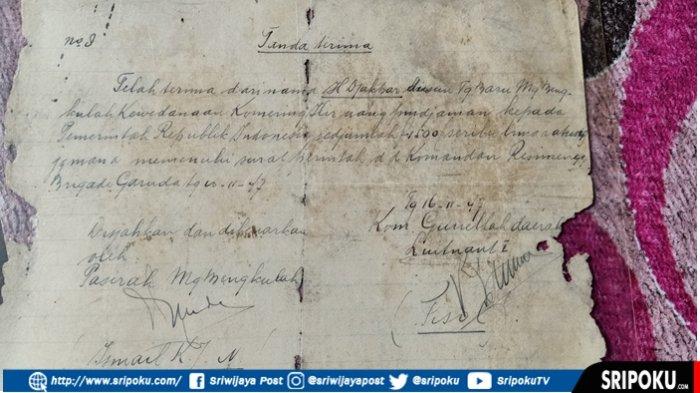 no 3
Tanda terima
Telah terima dari nama H Djakbar dusun Tg Baru Mg Beng-
kulah Kewedanaan Komering Ilir uang pindjaman kepada
Pemerintah Republik Indonesia sedjumlah 1500 seribu lima ratus
jemana memenuhi surat perintah d d Komandan Resimen
Brigade Garuda tg 11-47
Tg 16-11-47
Disjahkan dan dibenarkan
oleh
Pasirah Mg Bengkulah
Kom Gurellah daerah
Luitnant I
Ismail K. T. N
http://www.sripoku.com
Sriwijaya Post
@sriwijayapost
@sripoku
SripokuTV
SRIPOKU.COM